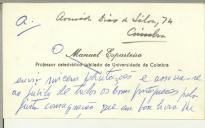 a. Avenida Dias da Silva, 74
Coimbra
O Manuel Esparteiro
Professor catedrático jubilado da Universidade de Coimbra
envia sinceras felicitações e associa-se
ao júbilo de todos os bons portugueses pela
justa consagração que em boa hora lhe